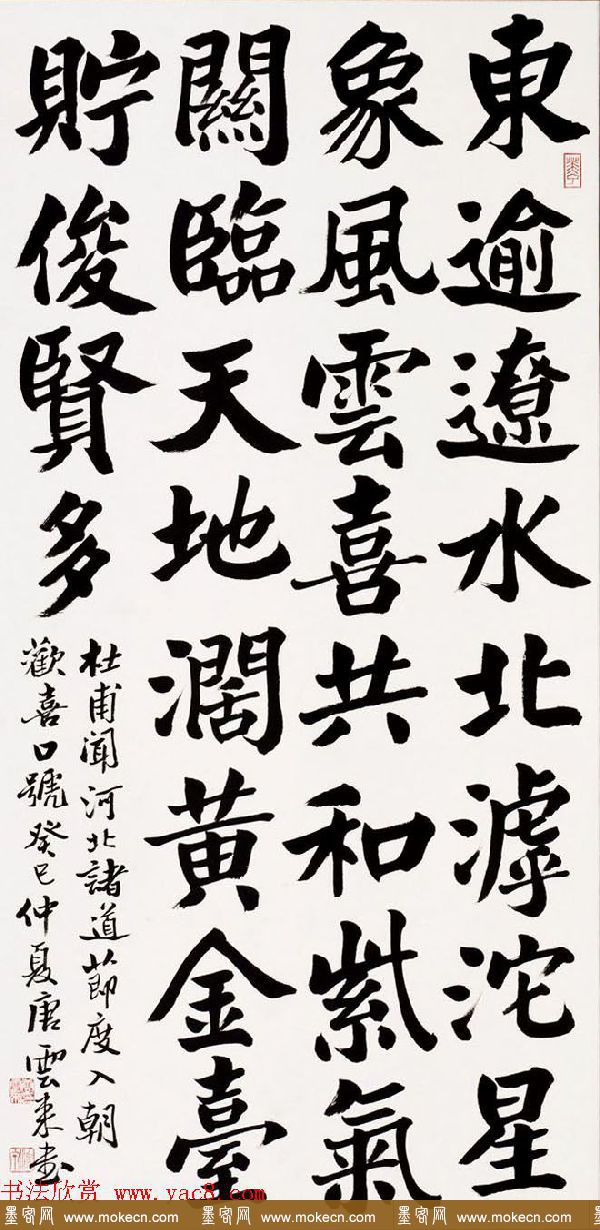 東逾遼水北滹沱星
象風雲喜共和紫氣
關臨天地闊黃金臺
貯俊賢多
杜甫聞河北諸道節度入朝
歡喜口號癸巳仲夏唐雲來書
书法欣赏 www.yac8.com
墨客网 www.mokecn.com 墨客网 www.mokecn.com 墨客网 www.mokecn.com